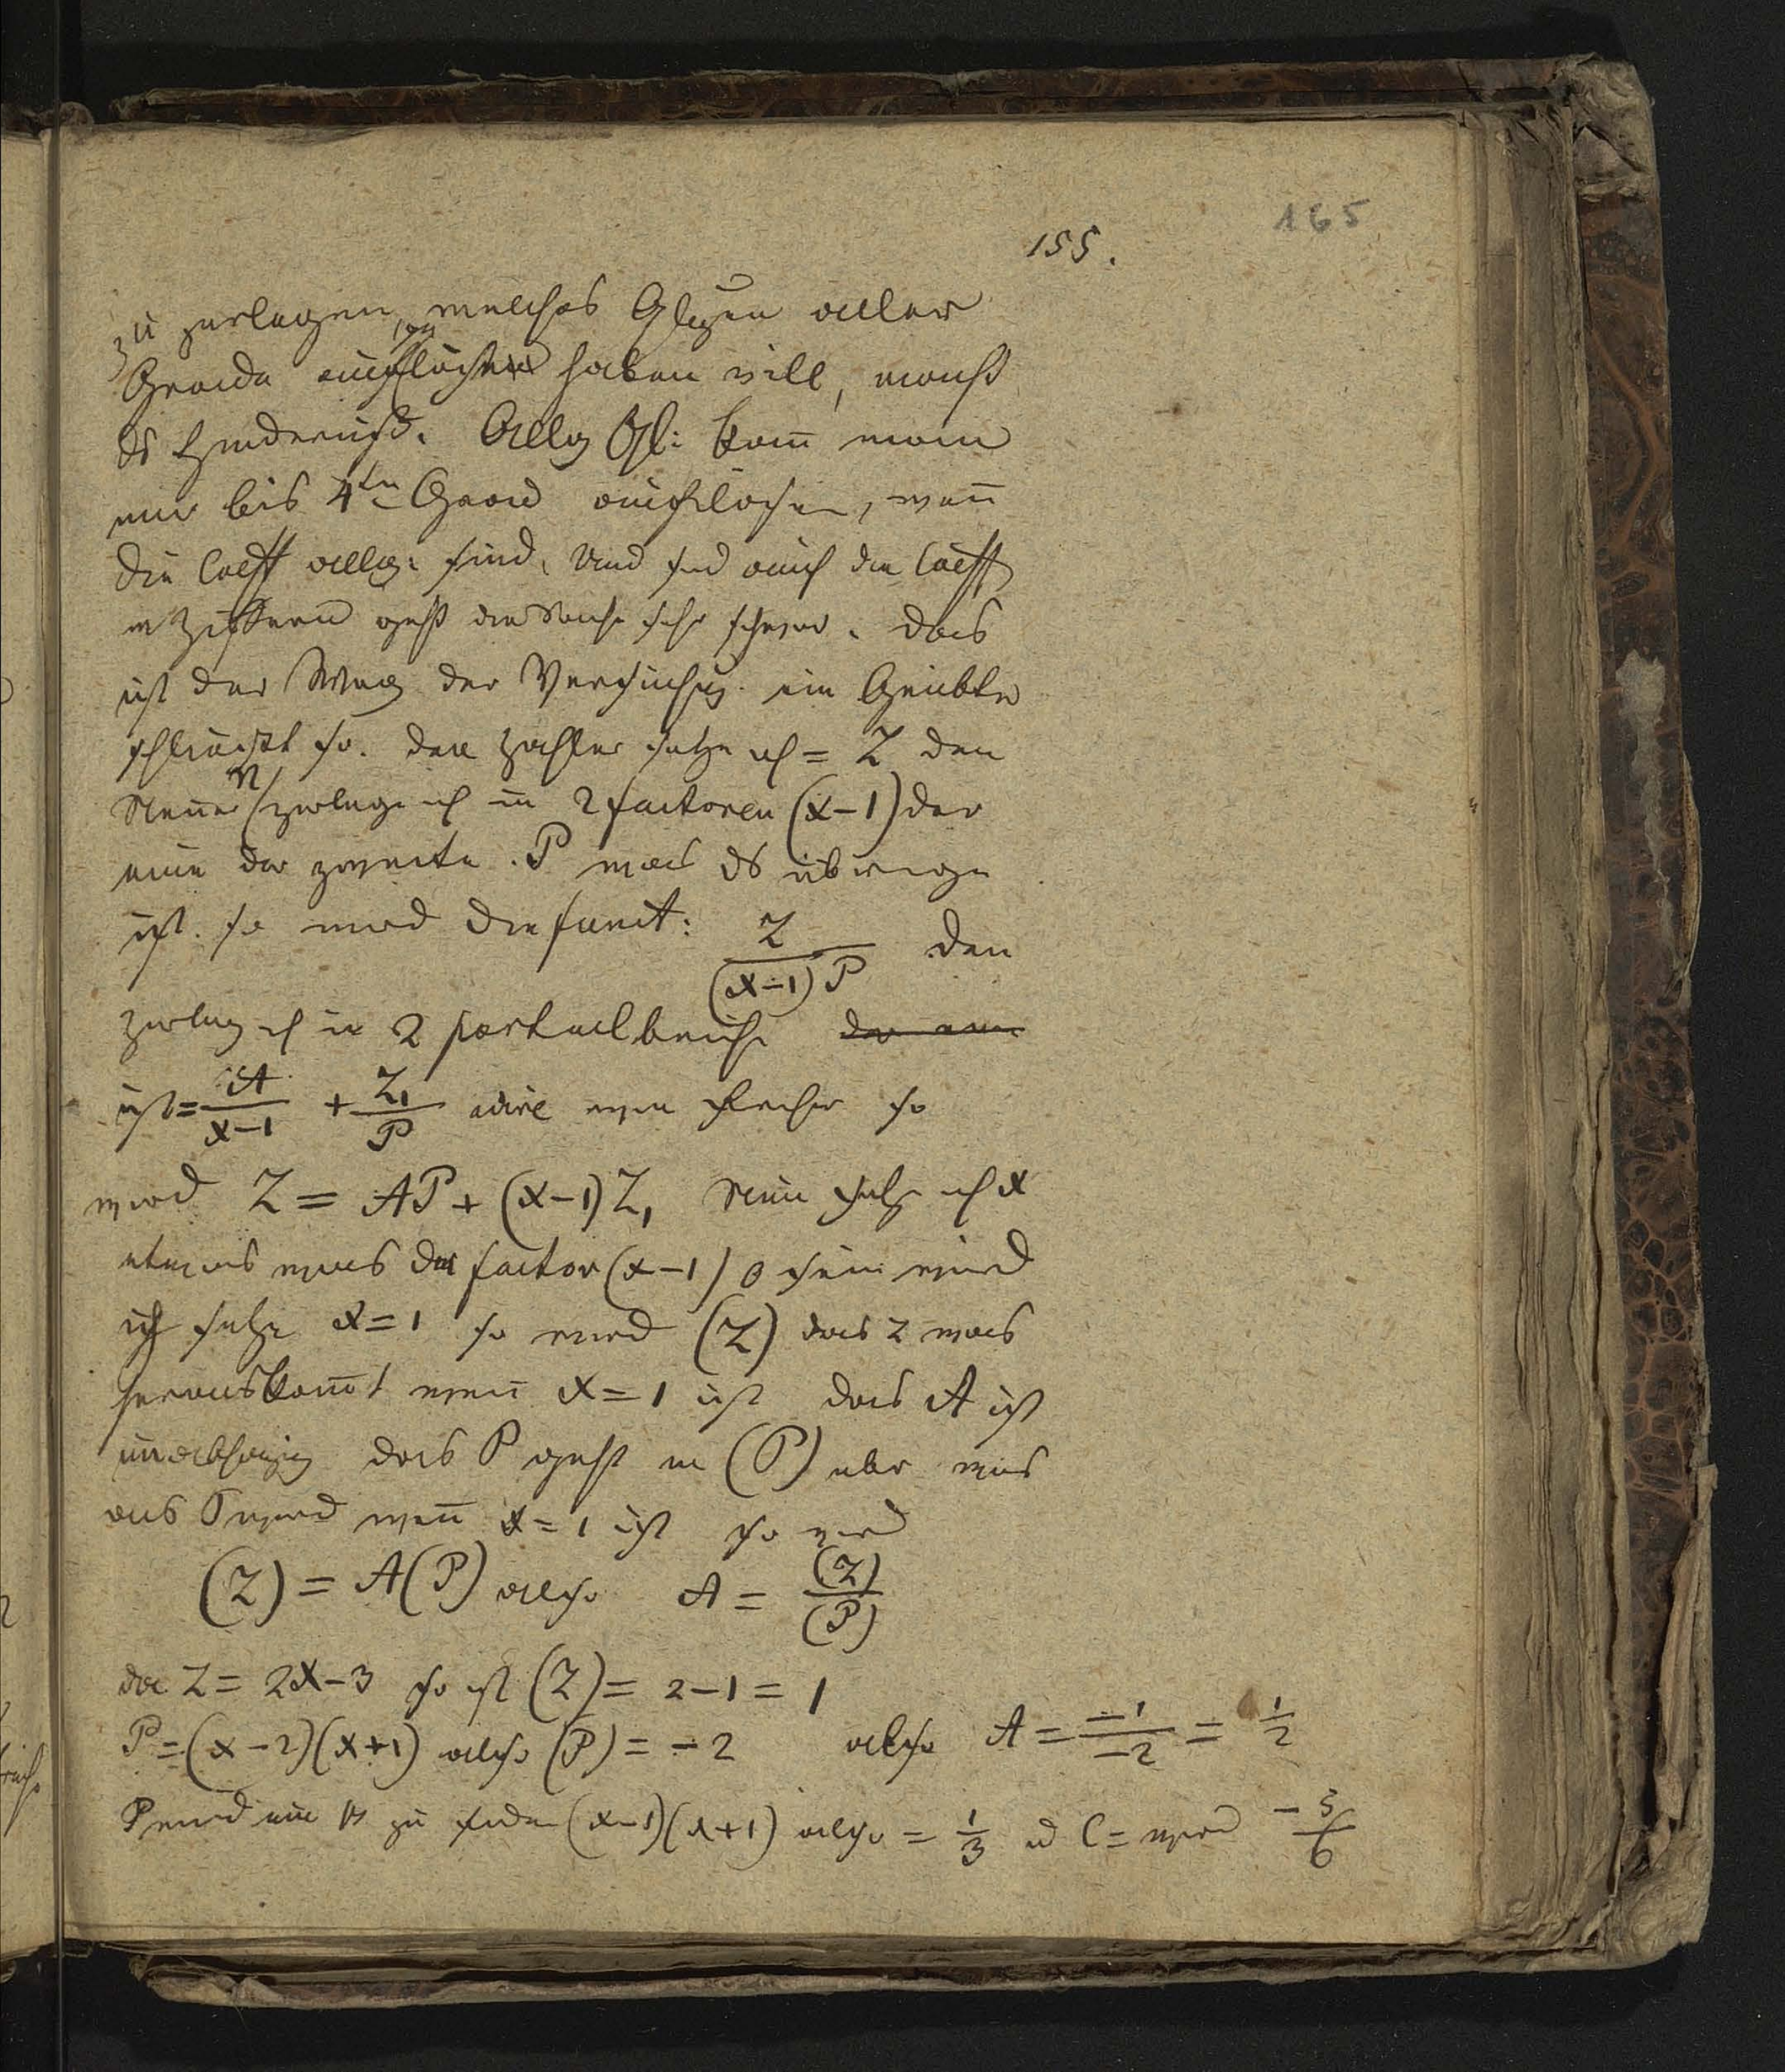 165
155.
zu zerlegen, welches Glgen aller
Grade auflösen haben will, macht
ds Hinderniß. Allg Gl: kann̄ man
nur bis 4ten Grad auflösen, wen̄
die Coeff allg: sind, und sind auch die Coeff
in Ziffern geht die Sache sehr schwer. das
ist der Weg der Versuchung. ein Geübter
schließt so. den Zahler setze ich = Z den
Nen̄er N zerlege ich in 2 factoren (x-1) der
eine der zweite P was ds übrige
ist. so wird die funct: Z/((x-1)P) den
zerleg ich in 2 partialbrüche der eine
ist = A/(x-1) + Z₁/P so
wird Z = AP + (x-1)Z₁ Nun setze ich x
etwas was der factor (x-1) 0 sein wird
ich setze x=1 so wird (Z) das Z was
herauskom̄t wen̄ x=1 ist das A ist
unabhängig das P geht in (P) über was
aus P wird wen̄ x=1 ist so wird
(Z) = A(P) also A = (Z)/(P)
da Z = 2x-3 so ist (Z) = 2-1 = 1
P = (x-2)(x+1) also (P) = -2 also A = -1/-2 = 1/2
P wird um B zu finden (x-1)(x+1) also = 1/3 u C = wird -5/6